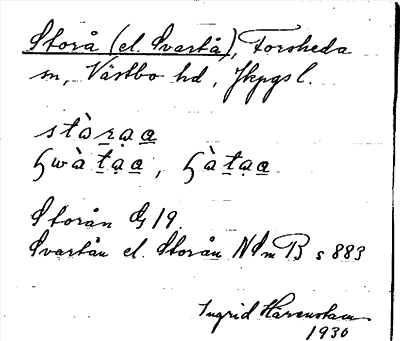 Storå (el. Svartå), Forsheda
sn, Västbo hd, Jkpgs l.
stòṟa̤a̲
ɧwàṯa̤a̲, ɧàṯa̤a̲
Storån G 19
Svartån el. Storån NSmB s 883
Ingrid Härenstam
1930